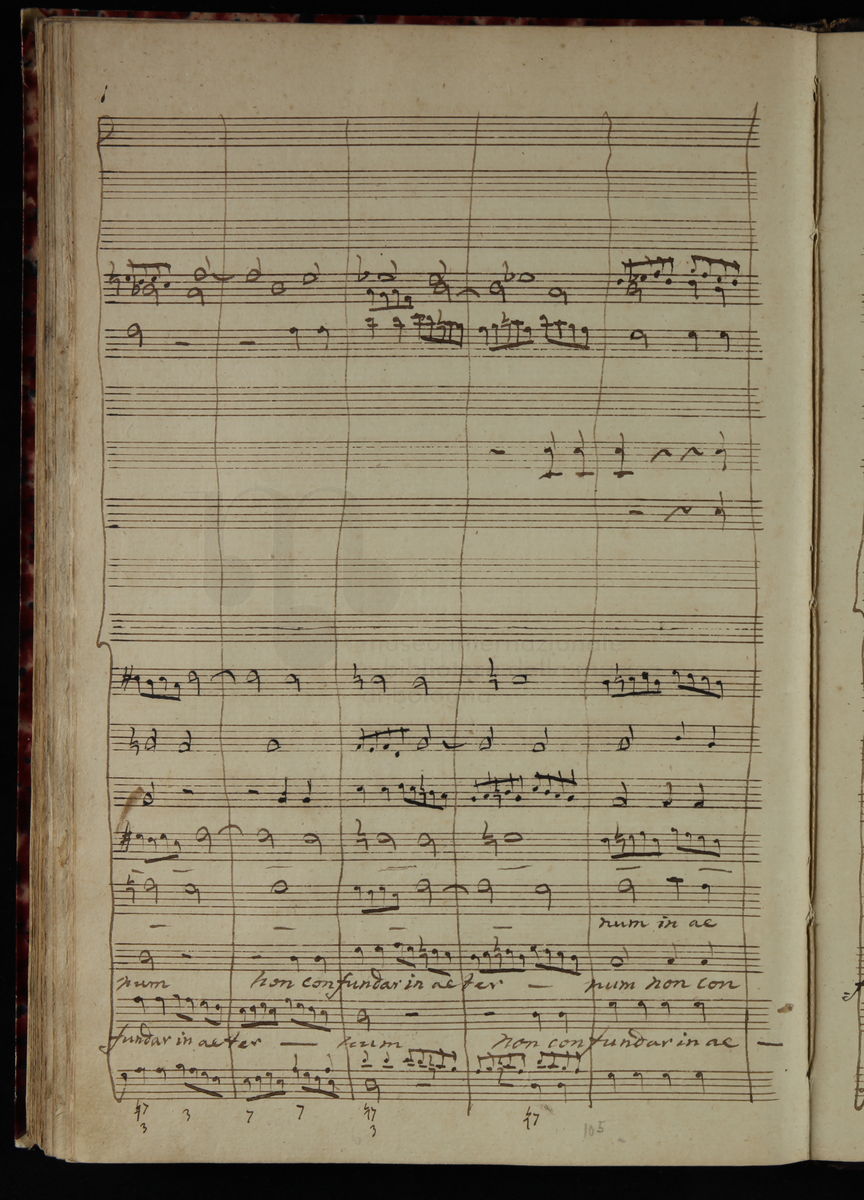 museo internazionale
num in ae
num non confundar in ae ter — num non con
fundar in ae ter — num non confundar in ae —
♮7 3 7 7 ♮7 ♮7
3 3
105